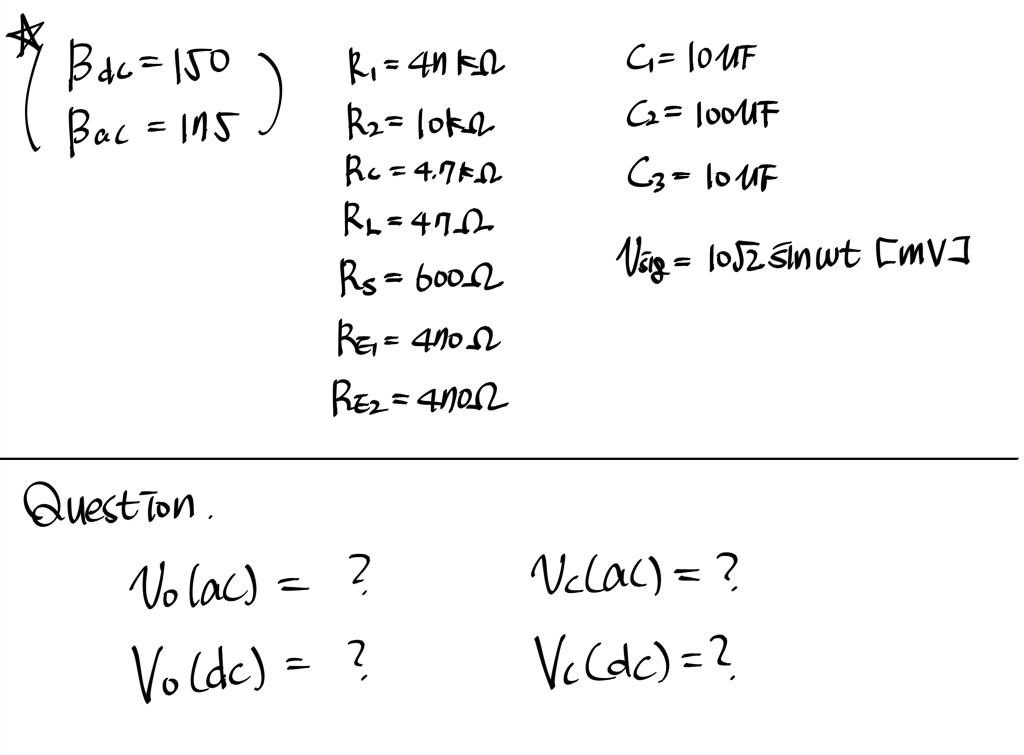 ☆
βdc = 150
βac = 175
R1 = 47kΩ
R2 = 10kΩ
Rc = 4.7kΩ
RL = 47Ω
Rs = 600Ω
RE1 = 470Ω
RE2 = 470Ω
C1 = 10uF
C2 = 100uF
C3 = 10uF
Vsig = 10√2 sinwt [mV]
Question.
Vo(ac) = ?
Vc(ac) = ?
Vo(dc) = ?
Vc(dc) = ?